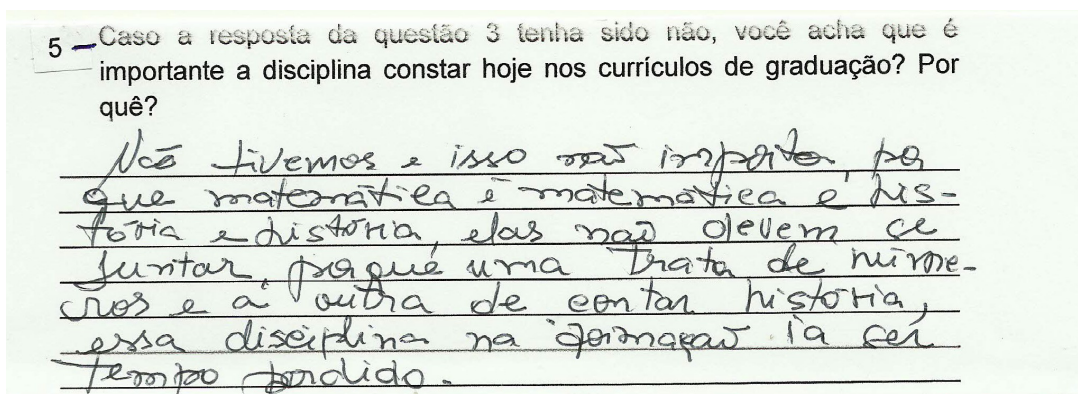 5 – Caso a resposta da questão 3 tenha sido não, você acha que é
importante a disciplina constar hoje nos currículos de graduação? Por
quê?
Não tivemos e isso não importa, por
que matemática é matemática e his-
tória e história, elas não devem ce
juntar, porque uma trata de núme-
eros e a outra de contar história,
essa disciplina na formação ia cer
tempo perdido.